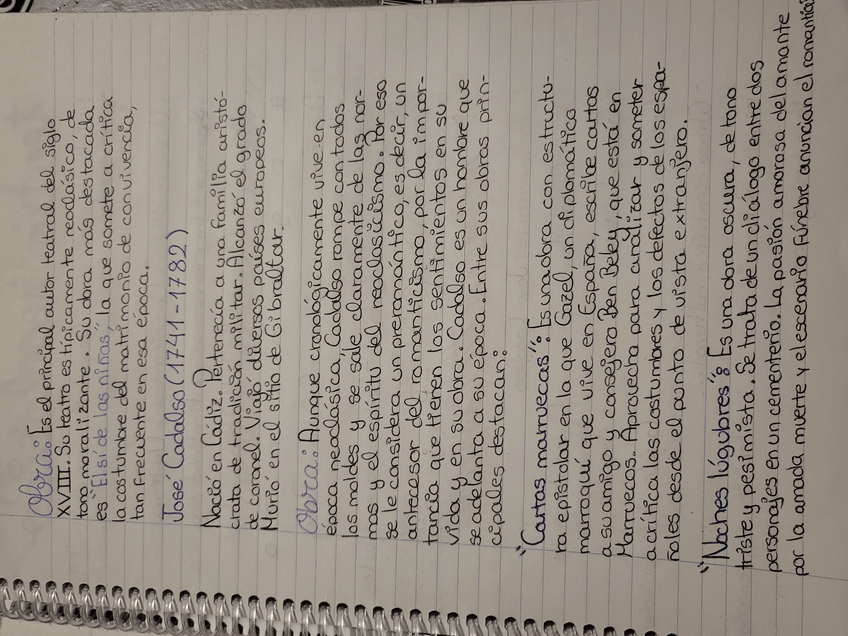 Obra: Es el principal autor teatral del siglo
XVIII. Su teatro es típicamente neoclásico, de
tono moralizante. Su obra más destacada
es "El sí de las niñas", la que somete a crítica
la costumbre del matrimonio de convivencia,
tan frecuente en esa época.
José Cadalso (1741-1782)
Nació en Cádiz. Pertenecía a una familia aristó-
crata de tradición militar. Alcanzó el grado
de coronel. Viajó diversos países europeos.
Murió en el sitio de Gibraltar.
Obra: Aunque cronológicamente vive en
época neoclásica, Cadalso rompe con todos
los moldes y se sale claramente de las nor-
mas y el espíritu del neoclasicismo. Por eso
se le considera un preromántico, es decir, un
antecesor del romanticismo, por la impor-
tancia que tienen los sentimientos en su
vida y en su obra. Cadalso es un hombre que
se adelanta a su época. Entre sus obras prin-
cipales destacan:
"Cartas marruecas": Es una obra con estructu-
ra epistolar en la que Gazel, un diplomático
marroquí que vive en España, escribe cartas
a su amigo y consejero Ben Beley, que está en
Marruecos. Aprovecha para analizar y someter
a crítica las costumbres y los defectos de los espa-
ñoles desde el punto de vista extranjero.
"Noches lúgubres": Es una obra oscura, de tono
triste y pesimista. Se trata de un diálogo entre dos
personajes en un cementerio. La pasión amorosa del amante
por la amada muerte y el escenario fúnebre anuncian el